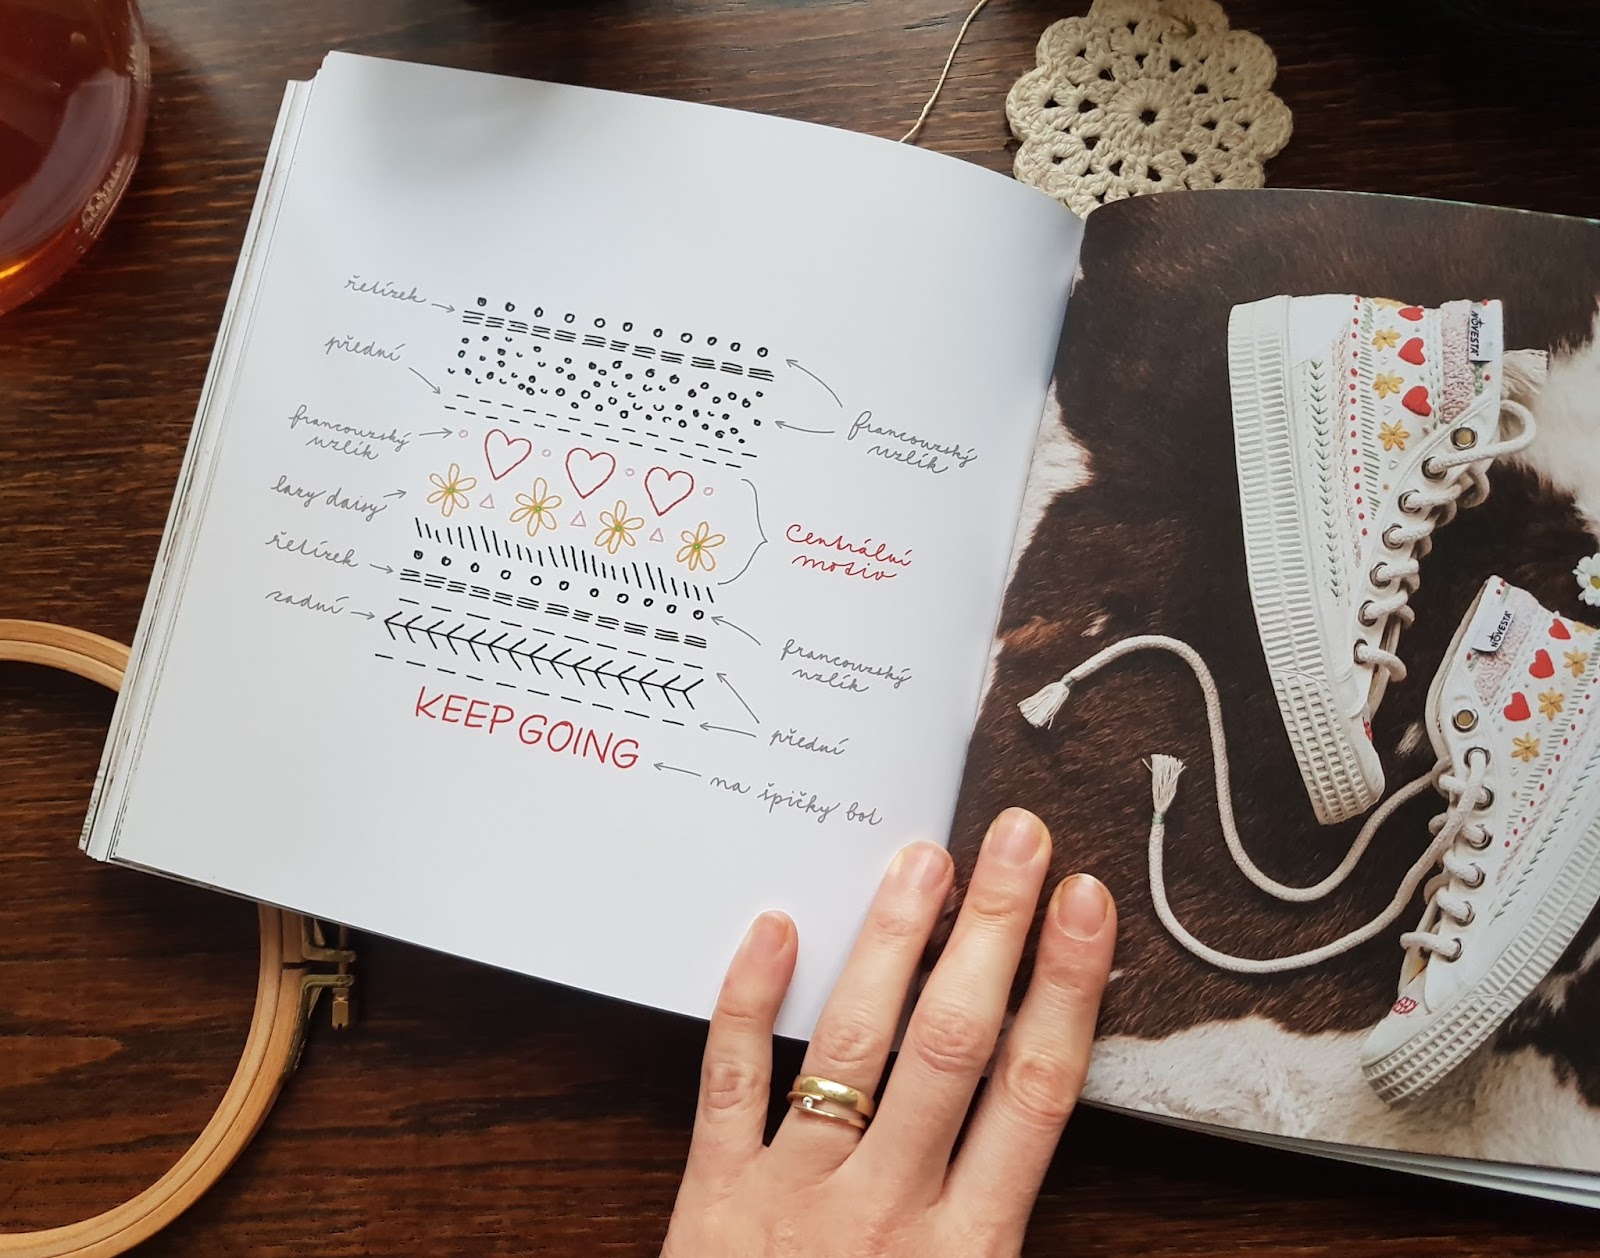 řetízek
přední
francouzský
uzlík
lazy daisy
řetízek
zadní
francouzský
uzlík
Centrální
motiv
francouzský
uzlík
přední
KEEP GOING
na špičky bot
NOVESTA
NOVESTA